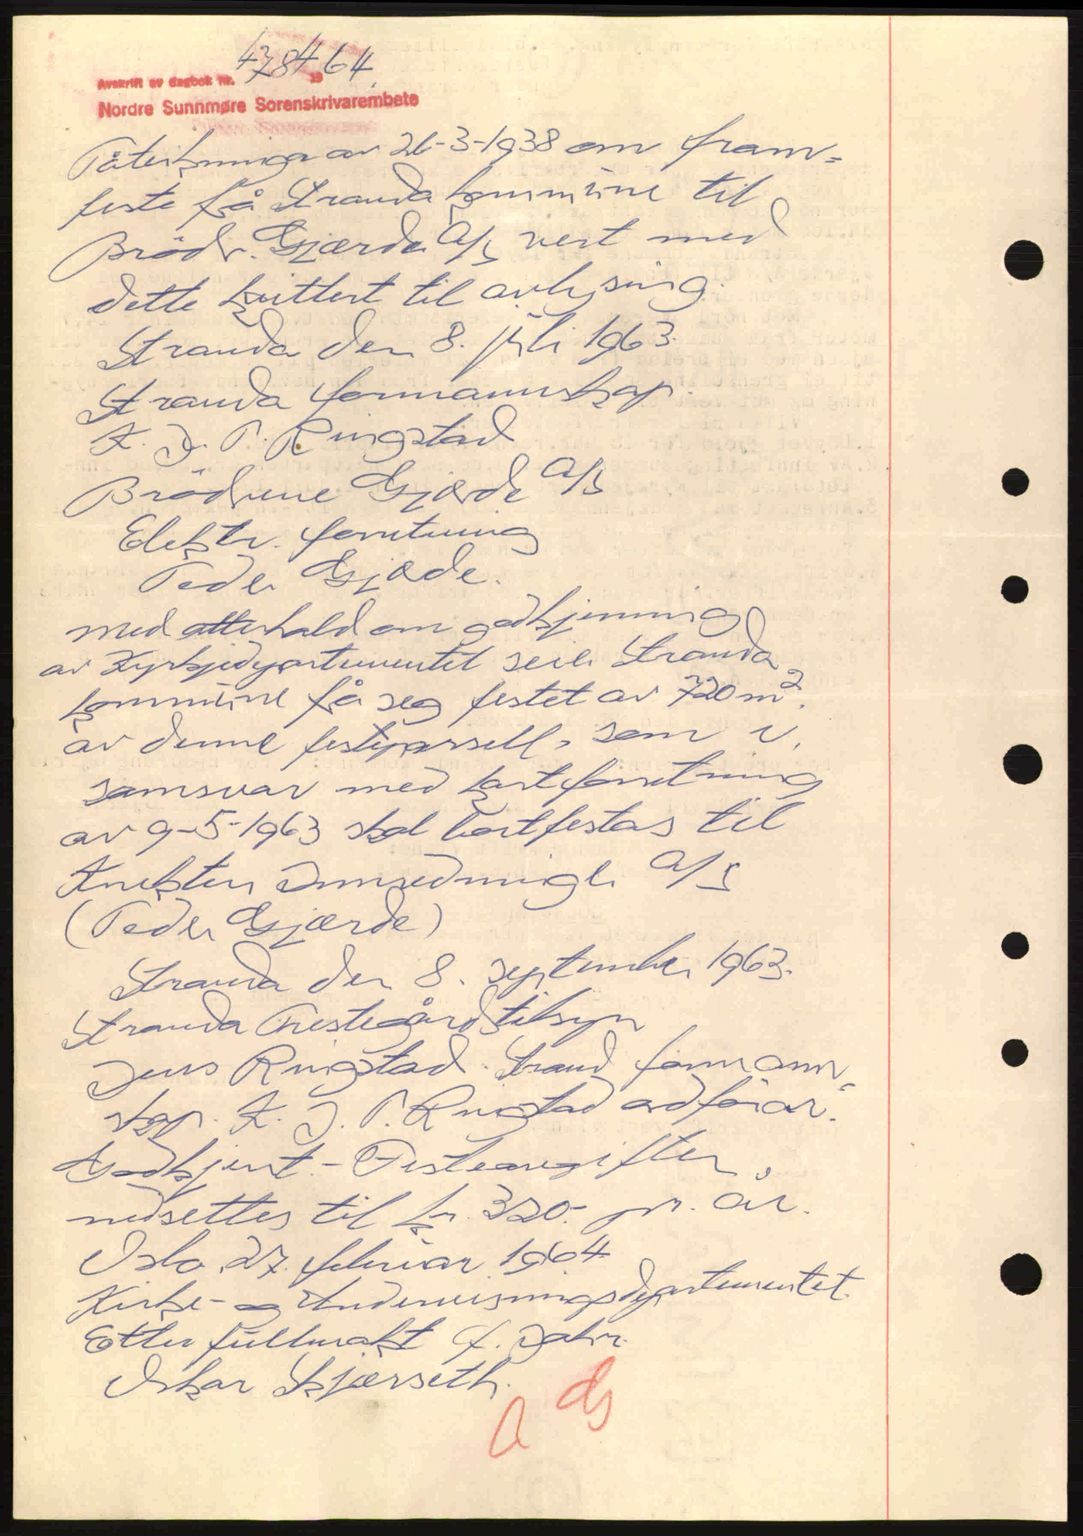 4784 64
Avskrift av dagbok nr. 19
Nordre Sunnmøre Sorenskrivarembete
Påteikninga av 26-3-1938 om fram-
feste frå Stranda kommune til
Brødr. Gjærde A/S vert med
dette kvittert til avlysing.
Stranda den 8. juli 1963.
Stranda formannskap.
K. J. P. Ringstad
Brødrene Gjærde A/S
Elektr. forretning
Peder Gjærde.
Med atterhald om godkjenning
av Kyrkjedepartementet seier Stranda
kommune frå seg festet av 720 m².
av denne festeparsell, som i
samsvar med kartforretning
av 9-5-1963 skal bortfestas til
Innredningar A/S
(Peder Gjærde)
Stranda den 8. september 1963.
Stranda Prestegårdstilsyn
Jens Ringstad. Strand formann-
skap. K. J. P. Ringstad ordførar.
Godkjent - Festeavgiften
nedsettes til kr. 320.- pr. år.
Oslo, 27. februar 1964
Kirke- og Undervisningsdepartementet.
Etter fullmakt
Oskar Skjærseth.